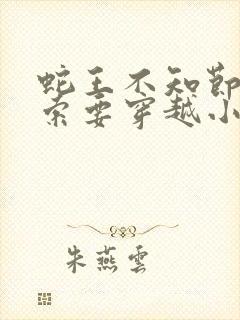 蛇王不知节
索要穿越小
朱燕雲